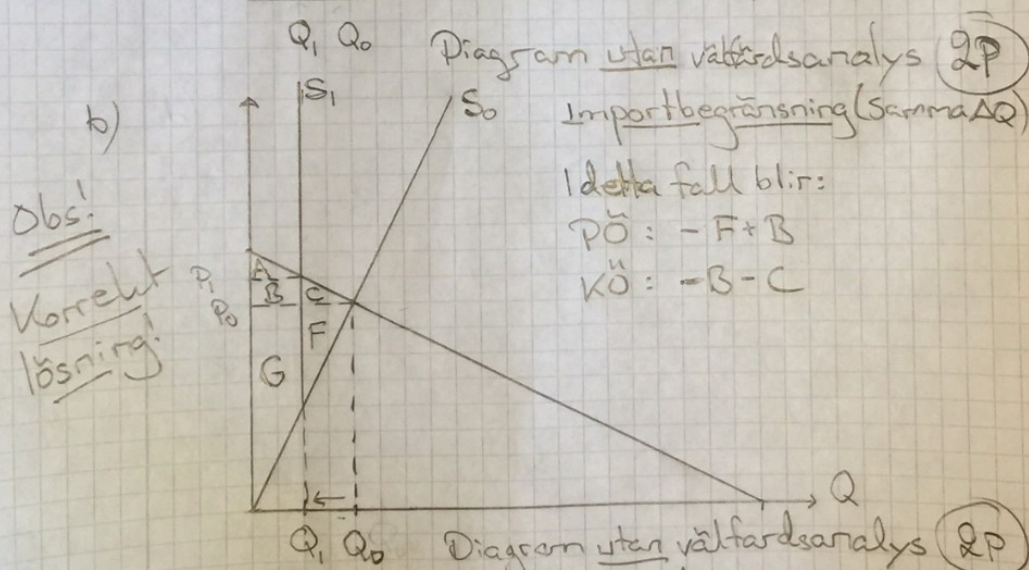 Q₁ Q₀
Diagram utan välfärdsanalys 2P
b)
S₁
S₀
Importbegränsning (Samma ΔQ)
I detta fall blir:
PÖ: -F+B
KÖ: -B-C
Obs!
Korrekt
lösning!
P₁
P₀
A
B
C
F
G
Q
Q₁ Q₀
Diagram utan välfärdsanalys 2P